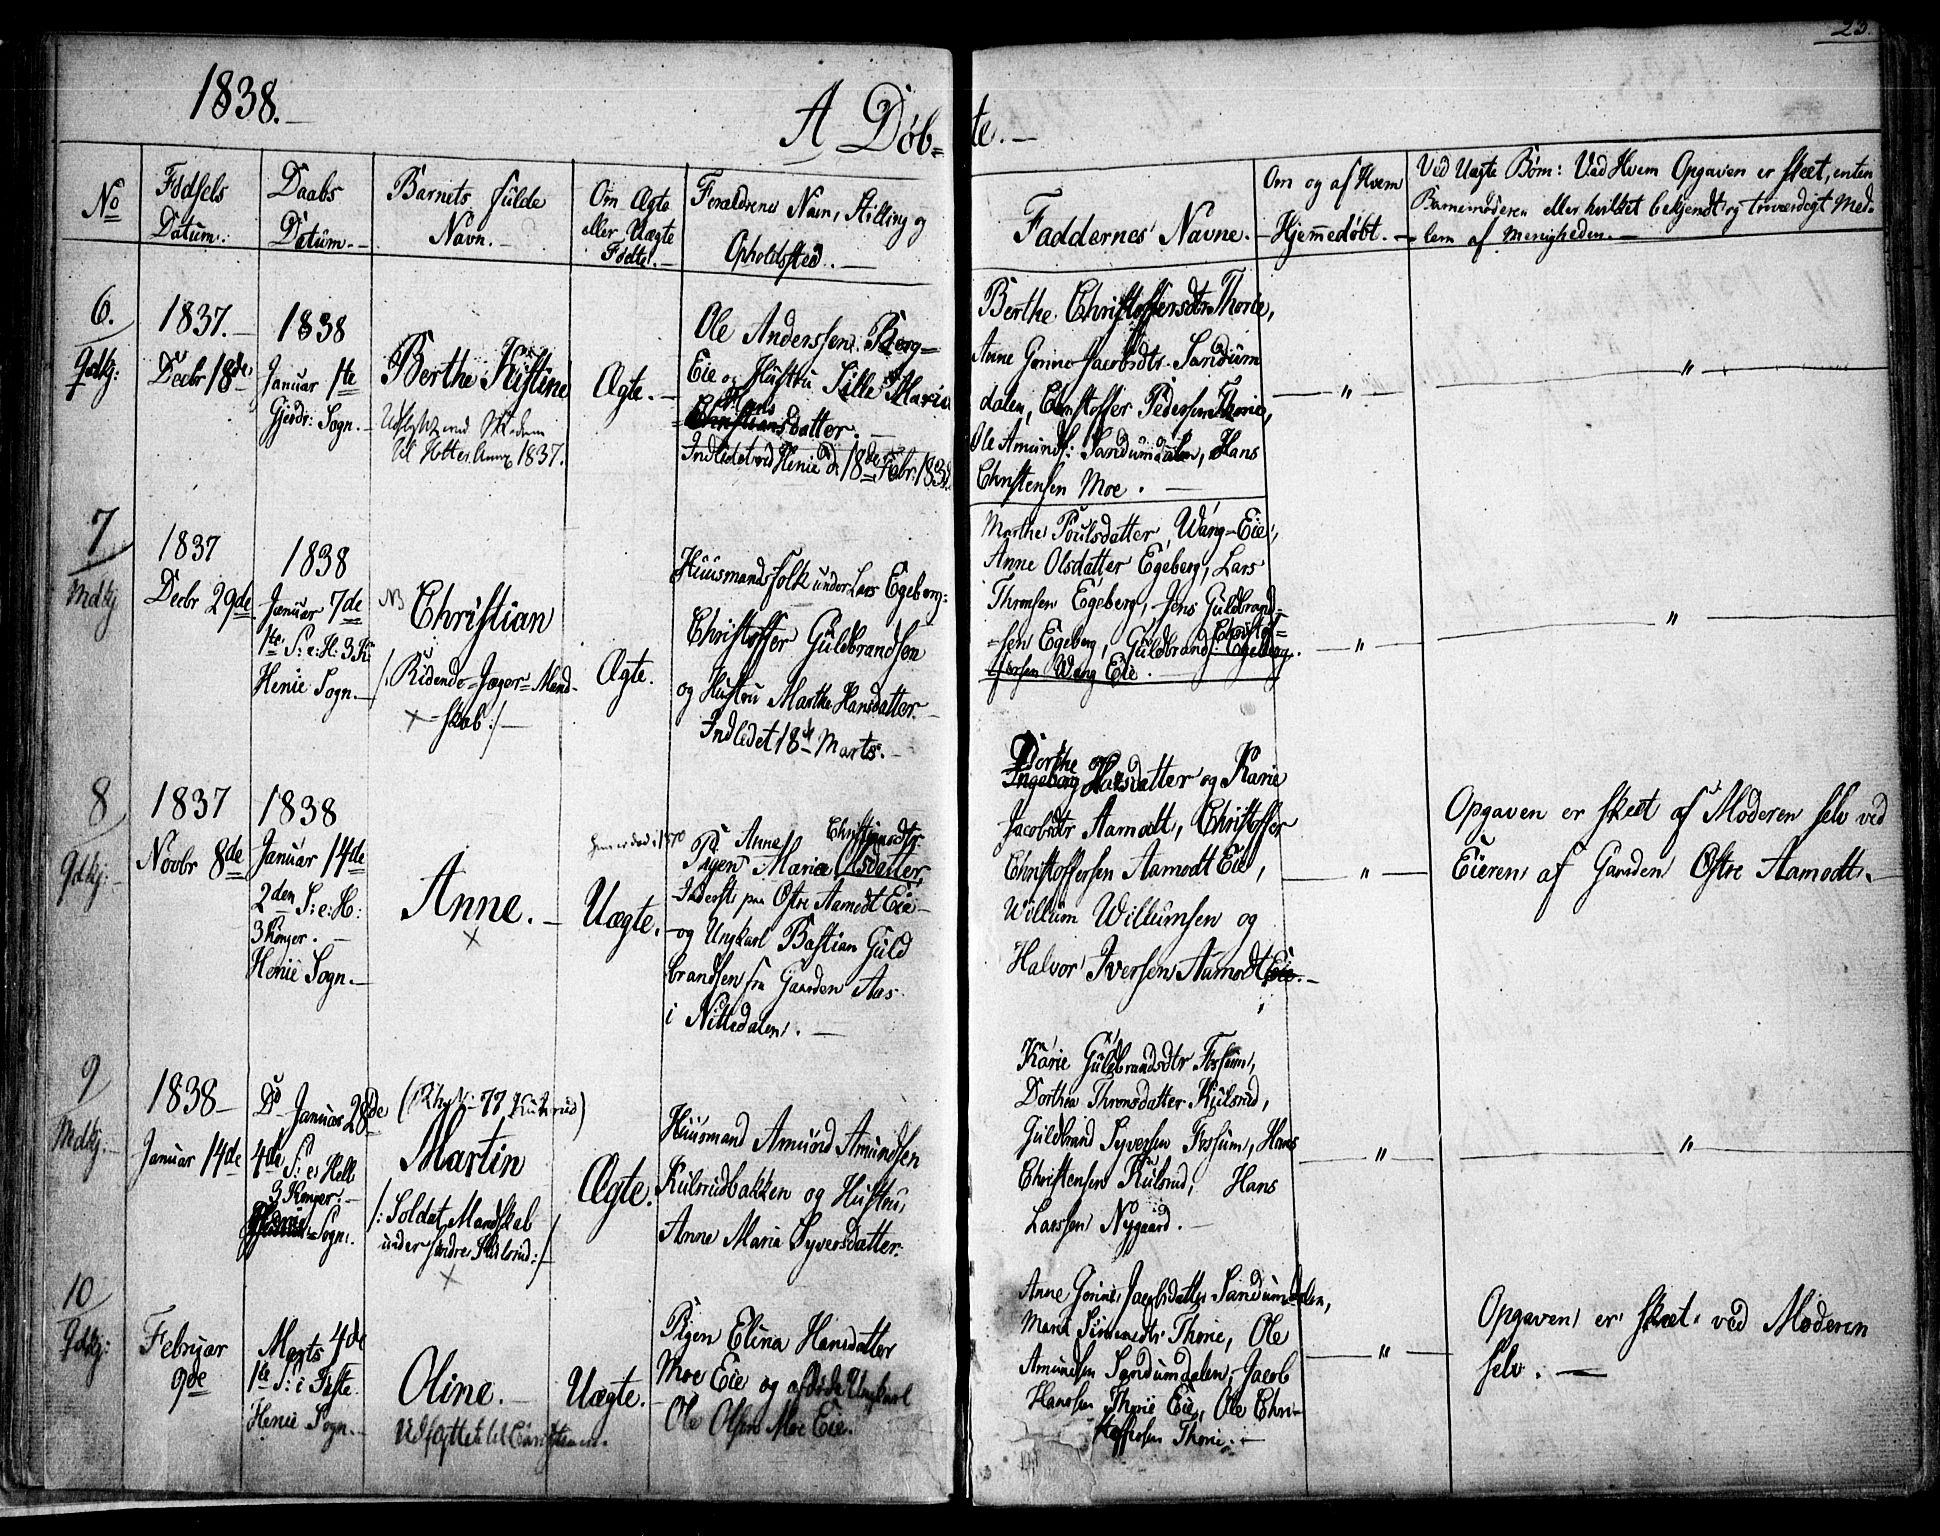 23.
1838.
A Døb=
te.
No
Fødsels
Datum.
Daabs
Datum.
Barnets fulde
Navn.
Om Ægte
eller Uægte
Fødte.
Forældrenes Navn, Stilling og
Opholdssted.
Faddernes Navne.
Om og af Hvem
Hjemedøbt.
Ved Uægte Børn: Ved Hvem Opgaven er skeet, enten
Barnemoderen eller hvilket bekjendt og troværdigt Med=
lem af Menigheden.
6.
Qdkj:
1837.
Decbr 18de
1838
Januar 1te
Gjerdr: Sogn.
Berthe Kistine
til Annex 1837.
Ægte.
Ole Anderssen Berg=
Eie og Hustru Sille Marie
Hans
Christiansdatter.
Indledet ved Henie d. 18de Febr: 1838.
Berthe Christoffersdtr Thorie,
Anne Gorine Jacobsdtr Sandum
dalen, Christoffer Pedersen Thorie,
Ole Amunds: Sandumdalen, og Hans
Christensen Moe.
"
"
7
Mdkj
1837
Decbr 29de
1838
Januar 7de
1te S: e: H: 3 K:
Henie Sogn.
NB
Christian
/: Ridende=Jæger=Mand=
skab :/
Ægte.
Huusmandsfolk under Lars Egeberg:
Christoffer Guldbrandsen
og Hustru Marthe Hansdatter.
Indledet 18de Marts.
Marthe Poulsdatter Wang=Eie,
Anne Olsdatter Egeberg, Lars
Thronsen Egeberg, Jens Guldbrand=
sen Egeberg, Guldbrand Christof=
Egeberg.
fersen Wang Eie.
"
"
8
Qdkj:
1837
Novbr 8de
1838
Januar 14de
2den S: e: H:
3 Konger.
Henie Sogn.
Anne.
Uægte.
Anne Christiansdtr
Pigen Marie Olsdatter,
Inderst paa Østre Aamodt Eie
og Ungkarl Bastian Guld
brandsen fra Gaarden Aas
i Nittedalen.
Dorthe
Ingeborg Hansdatter og Karie
Jacobsdtr Aamodt, Christoffer
Christoffersen Aamodt Eie,
Willum Willumsen og
Halvor Iversen Aamodt Eie.
"
Opgaven er skeet af Moderen selv ved
Eieren af Gaarden Østre Aamodt.
9
Mdkj.
1838
Januar 14de
Do Januar 28de
4de S: e: Hell:
3 Konger.
Henie Sogn.
Martin
/: Soldat Mandskab
under søndre Kulsrud :/
Ægte.
Huusmand Amund Amundsen
Kulsrudbakken og Hustru,
Anne Maria Syversdatter.
Karie Guldbrandsdtr Fossum,
Dorthea Thronsdatter Kulsrud,
Guldbrand Syversen Fossum, Hans
Christensen Kulsrud, Hans
Larssen Nygaard.
"
"
10
Qdkj:
Februar
9de
Marts 4de
1te S: i Faste
Henie Sogn.
Oline.
Uægte.
Pigen Elina Hansdatter
Moe Eie og afdøde Ungkarl
Ole Olsen Moe Eie.
Anne Gorine Jacobsdatter Sandumdalen,
Maria Thorie, Ole
Amundsen Sandumdalen, Jacob
Hanssen Thorie Eie, Ole Chri=
stoffersen Thorie.
"
Opgaven er skeet ved Moderen
selv.